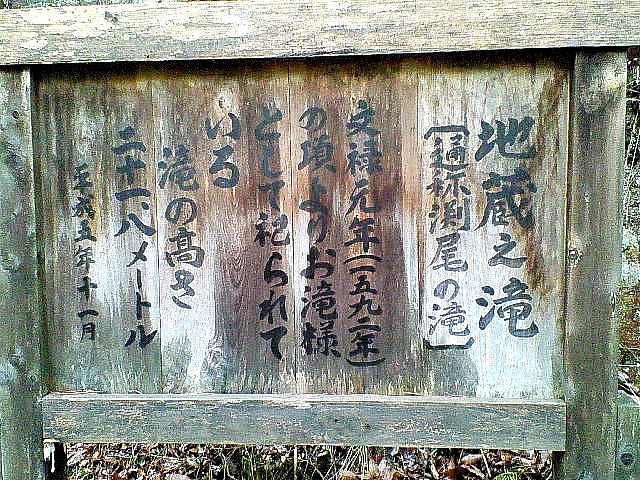 地蔵之滝
(通称渕尾の滝)
文禄元年(一五九二年)
の頃よりお滝様
として祀られて
いる
滝の高さ
二十一、八メートル
平成五年十一月